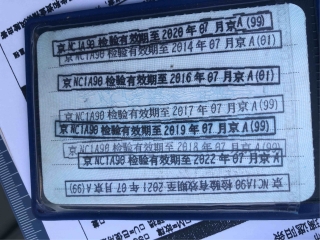 京NC1A90 检验有效期至 2020 年 07 月京A(99)
京NC1A90 检验有效期至 2014 年 07 月京A(01)
京NC1A90 检验有效期至 2016 年 07 月京A(01)
京NC1A90 检验有效期至 2017 年 07 月京A(99)
京NC1A90 检验有效期至 2019 年 07 月京A(99)
京NC1A90 检验有效期至 2018 年 07 月京A(99)
京NC1A90 检验有效期至 2022 年 07 月京A
京NC1A90 检验有效期至 2021 年 07 月京A(99)